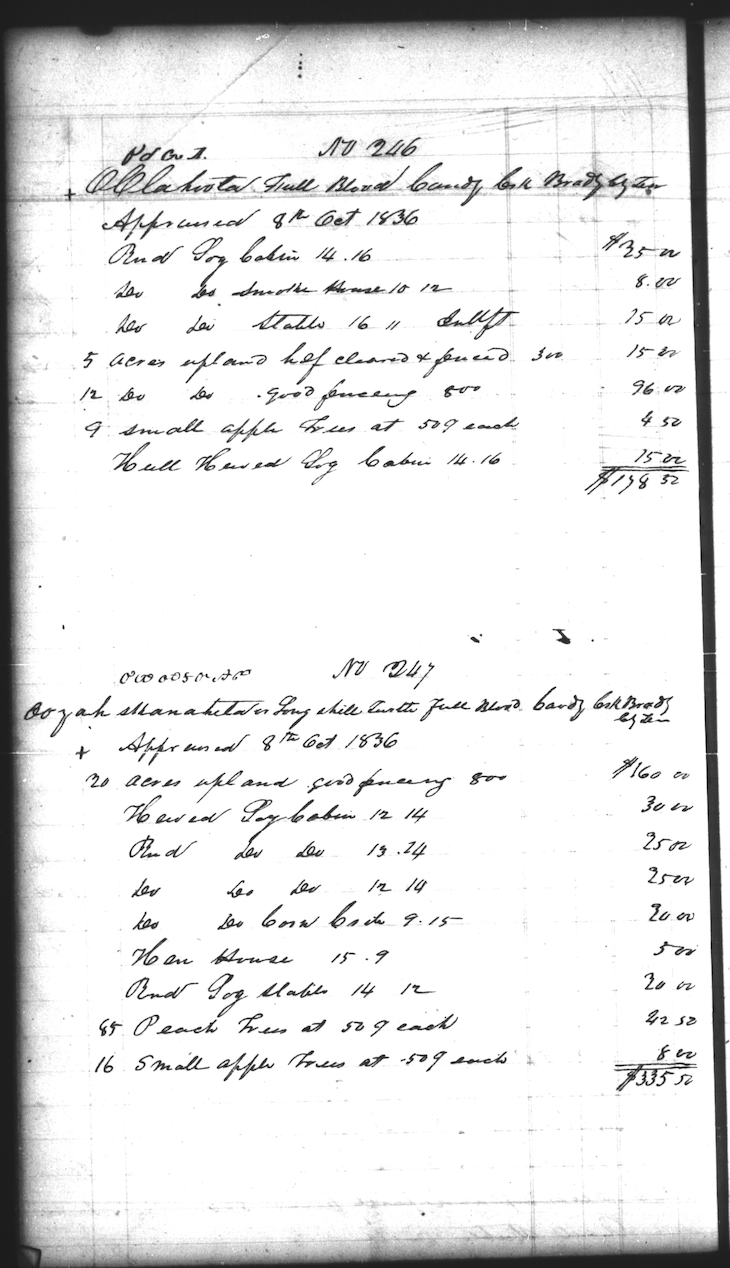 No 246
Full Blood Candy Crk Brady Cy Ten
Appraised 8th Oct 1836
Rnd Log Cabin 14.16 $25 00
Do Do Smoke House 10 12 8.00
Do Do Stable 16 11 15 00
5 acres upland half cleared & fenced 300 15 00
12 Do Do good fencing 800 96 00
9 small apple Trees at 50 ¢ each 4 50
Hull Hewed Log Cabin 14.16 15 00
$178 50
No 247
Full Blood Candy Crk Brady
Cy Ten
Appraised 8th Oct 1836
20 acres upland good fencing 800 $160 00
Hewed Log Cabin 12 14 30 00
Rnd Do Do 13.24 25 00
Do Do Do 12 14 25 00
Do Do Corn Crib 9.15 20 00
Hen House 15.9 5 00
Rnd Log Stable 14 12 20 00
85 Peach Trees at 50 ¢ each 42 50
16 Small apple Trees at 50 ¢ each 8 00
$335 50